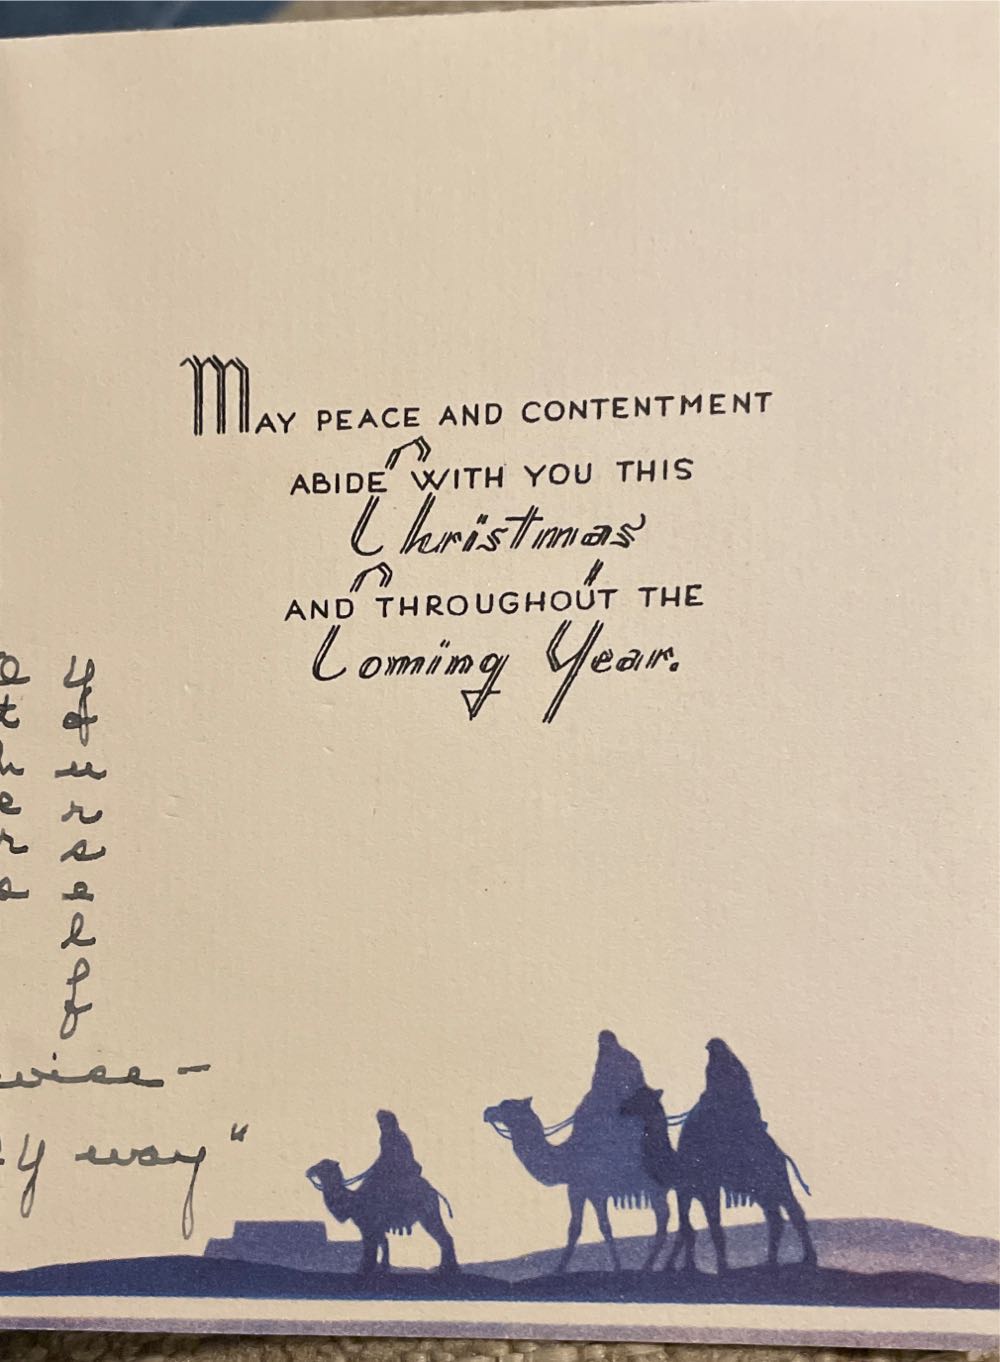 MAY PEACE AND CONTENTMENT
ABIDE WITH YOU THIS
Christmas
AND THROUGHOUT THE
Coming Year.
y
o
u
r
s
e
l
f
wise-
way"